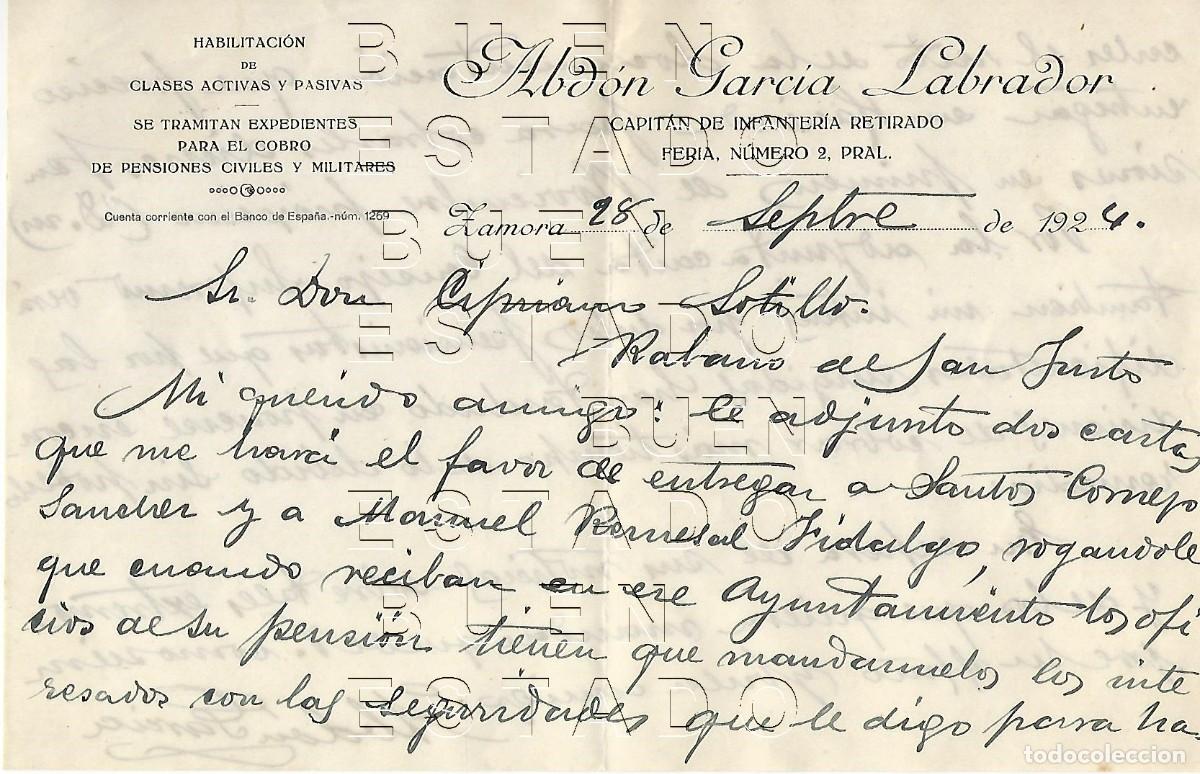 HABILITACIÓN
DE
CLASES ACTIVAS Y PASIVAS
SE TRAMITAN EXPEDIENTES
PARA EL COBRO
DE PENSIONES CIVILES Y MILITARES
Cuenta corriente con el Banco de España.-núm. 1259
Abdón García Labrador
CAPITÁN DE INFANTERÍA RETIRADO
FERIA, NÚMERO 2, PRAL.
Zamora 28 de Septbre de 1924.
Sr. Don Cipriano Sotillo.
Rabano de San Justo
Mi querido amigo: le adjunto dos cartas
que me hará el favor de entregar a Santos Cornejo
Sanchez y a Manuel Remesal Fidalgo, rogandole
que cuando reciban en ese Ayuntamiento los ofi
cios de su pensión tienen que mandarmelos los inte
resados con las seguridades que le digo para ha-
BUEN
ESTADO
BUEN
ESTADO
BUEN
ESTADO
BUEN
ESTADO
todocoleccion